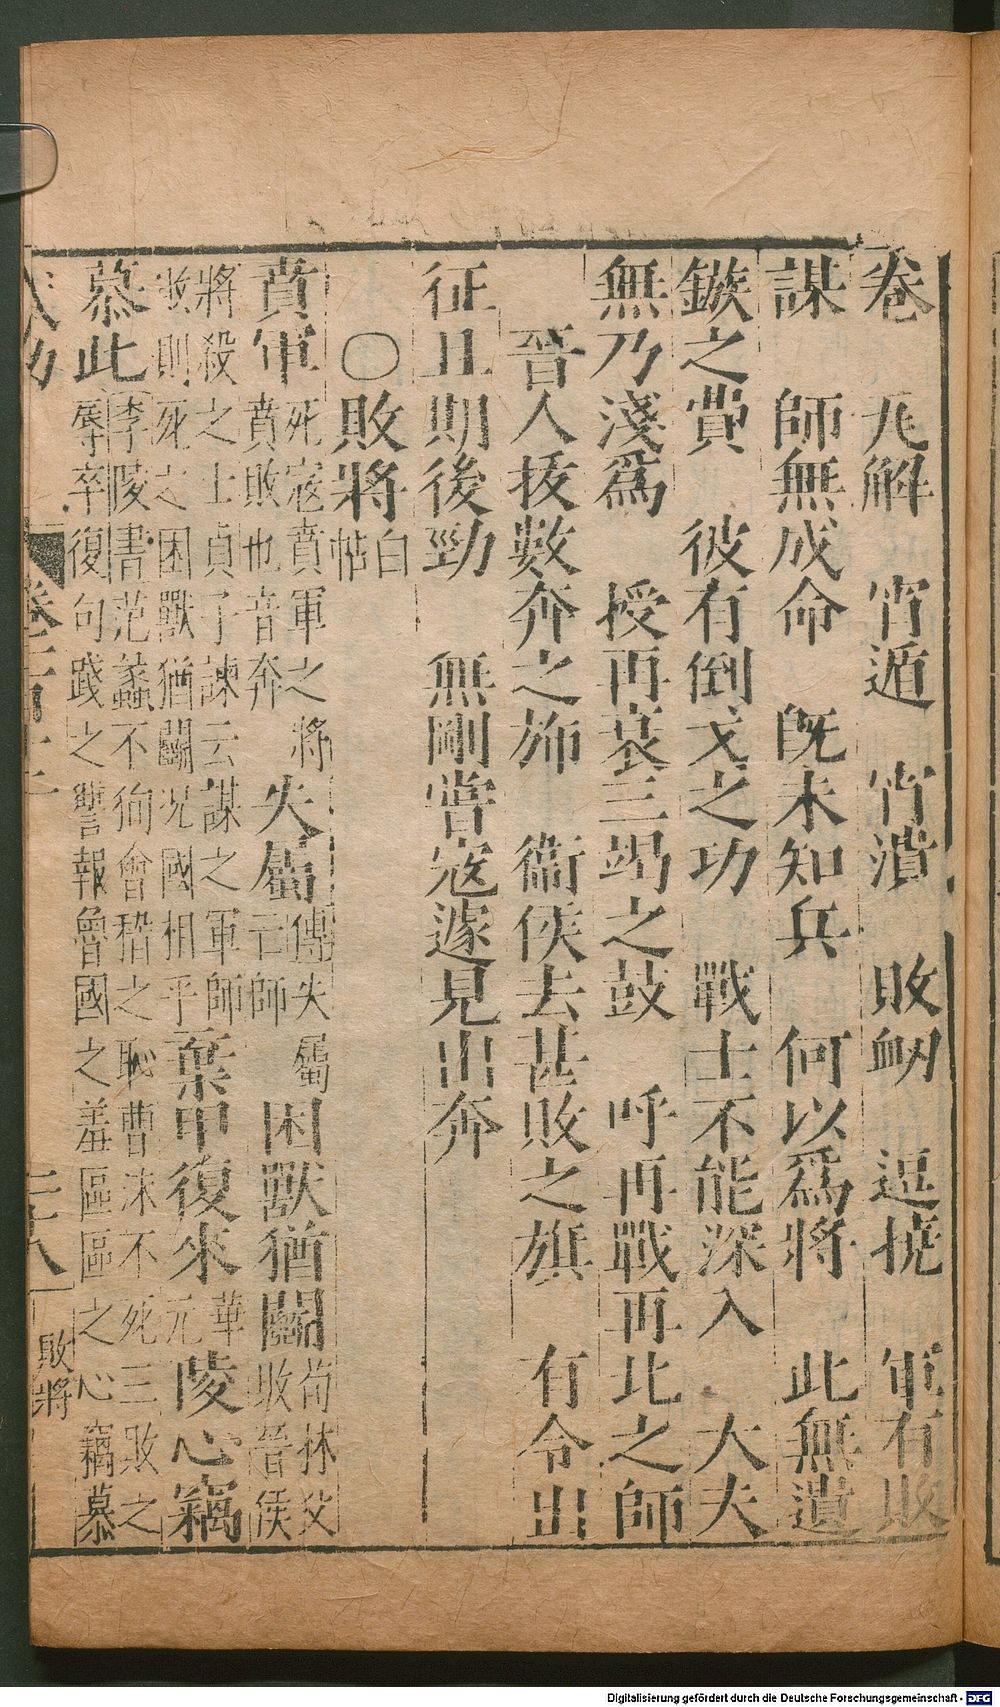 卷　瓦解　宵遁　宵潰　敗衂　逗撓　軍有敗
謀　師無成命　旣未知兵　何以爲將　此無遺
鏃之費　彼有倒戈之功　戰士不能深入　大夫
無乃淺爲　授再衰三竭之鼓　呼再戰再北之師
晉人拔數奔之旆　衞侯去甚敗之旗　有令出
征且期後勁　無剛嘗寇遽見出奔
○敗將白帖
賁軍死寇賁軍之將賁敗也音奔　失屬傳失屬亡師　困獸猶鬭荀林父敗晉侯
將殺之士貞子諫云謀之軍師敗則死之困獸猶鬭况國相乎　棄甲復來華元　陵心竊
慕此李陵書范蠡不徇會稽之恥曹沬不死三敗之辱卒復句踐之讐報魯國之羞區區之心竊慕
卷二百十二　三十八　敗將
Digitalisierung gefördert durch die Deutsche Forschungsgemeinschaft - DFG